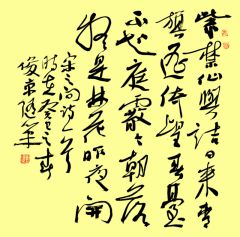 紫禁仙輿詰旦来青
旂遥倚望春臺
不知庭霰今朝落
疑是林花昨夜開
宋之问诗一首
时在癸巳之春
俊東随筆